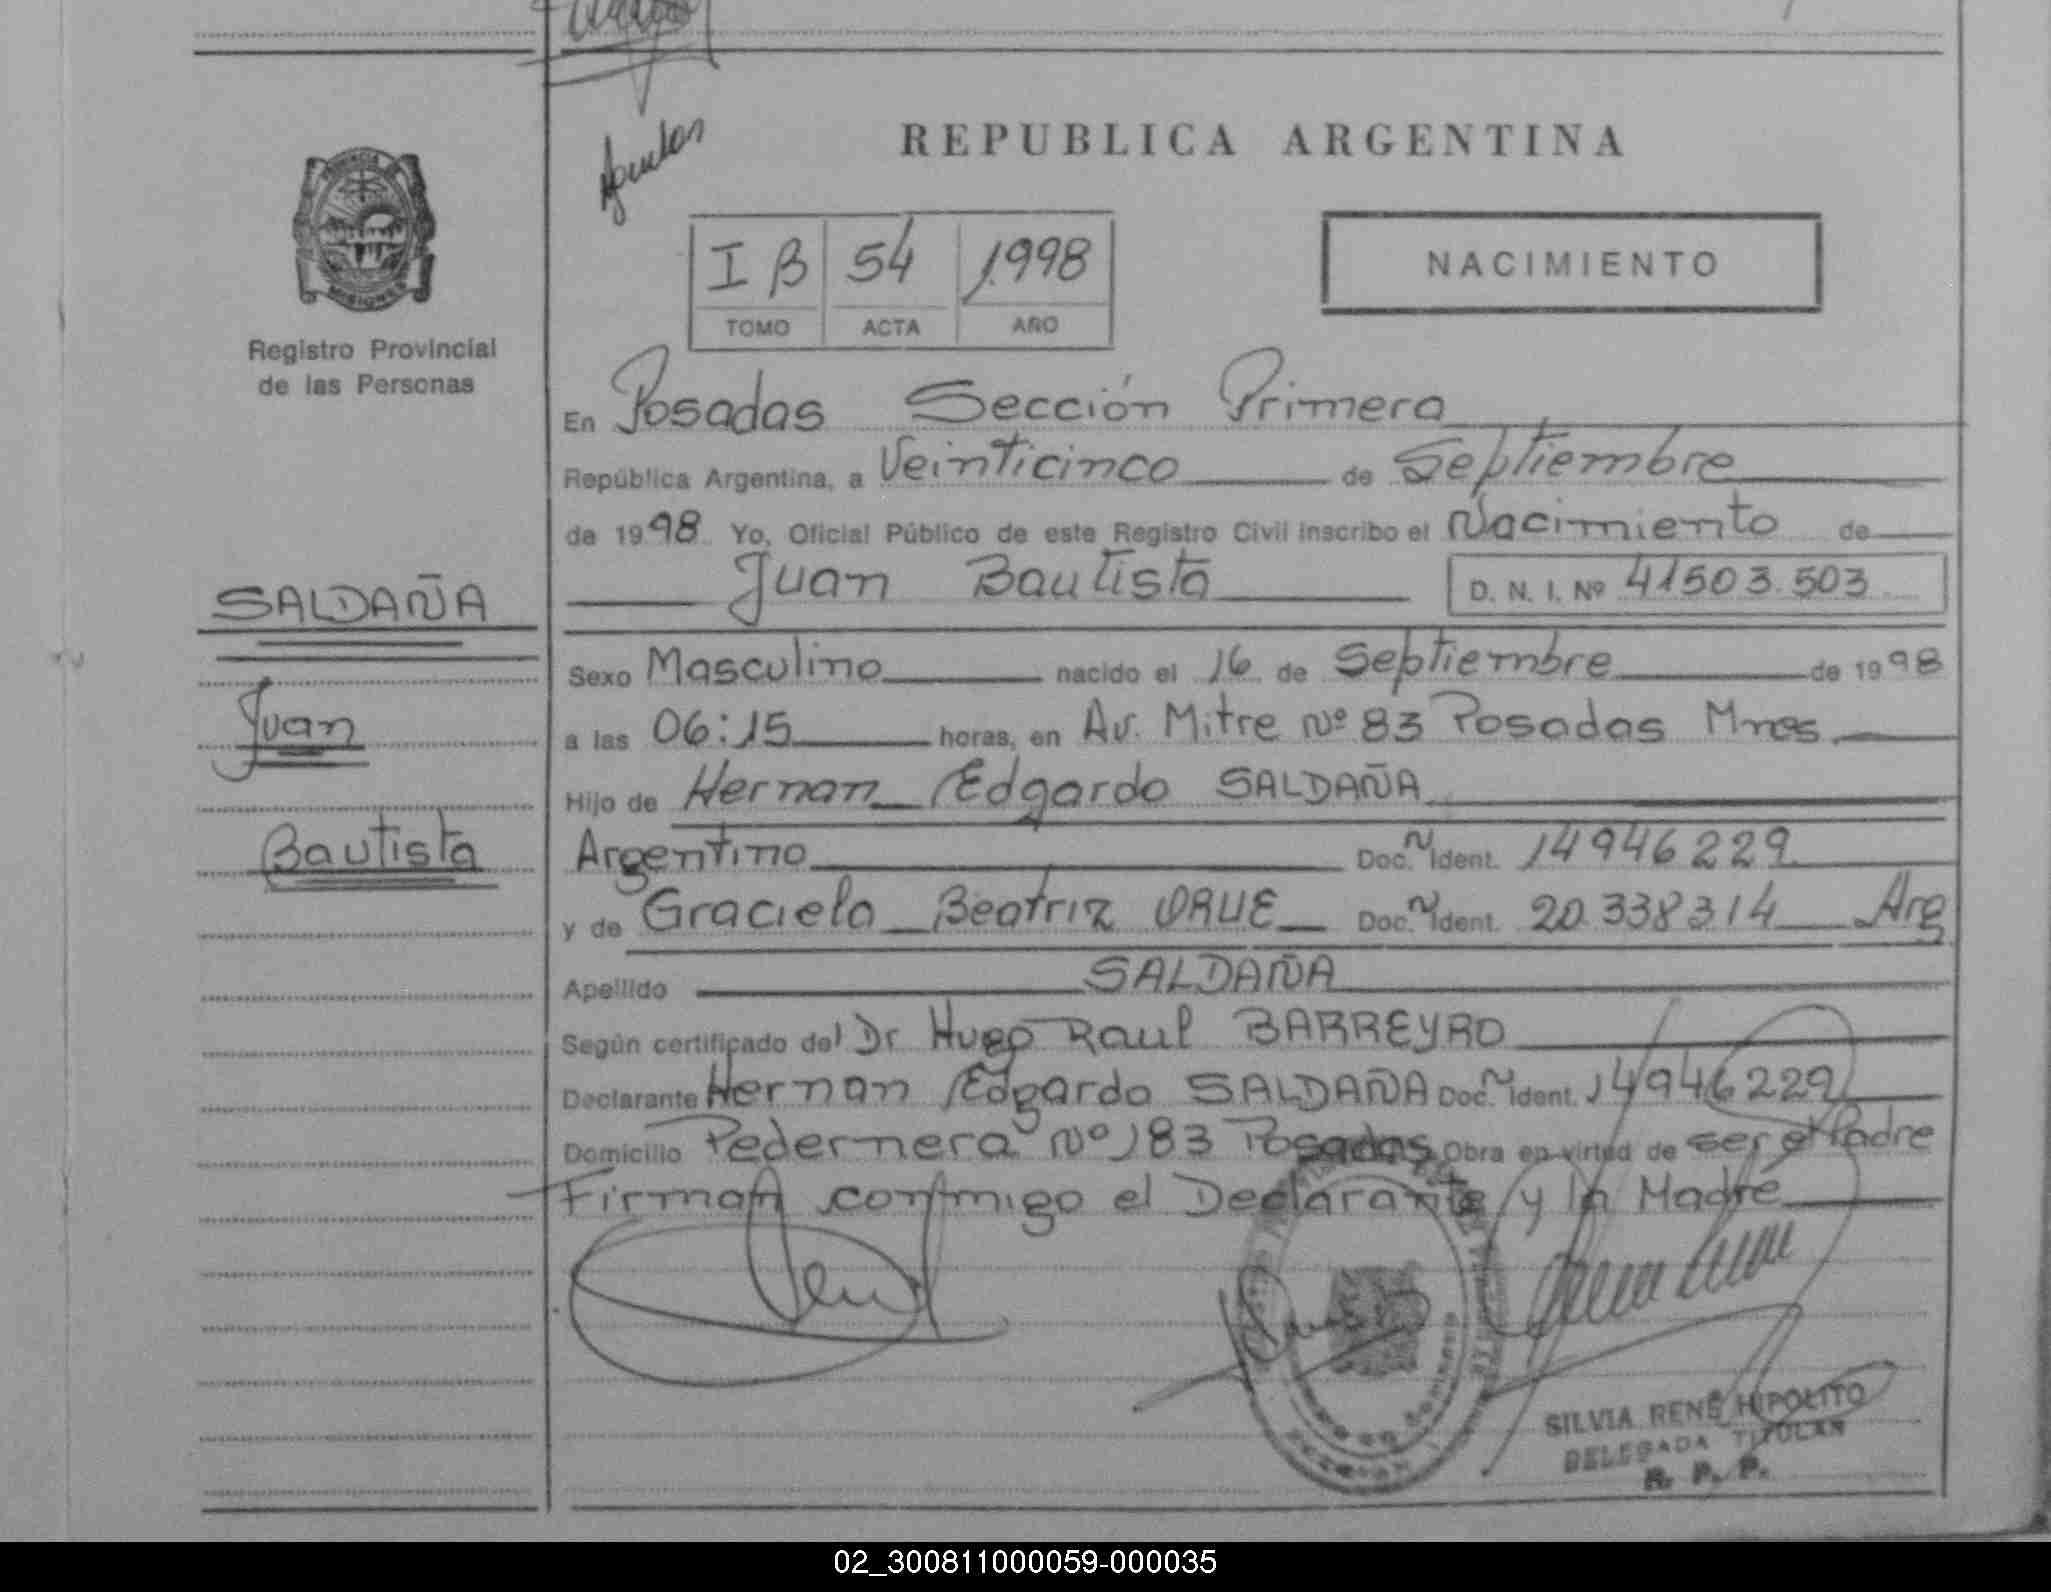 REPUBLICA ARGENTINA
I B 54 1998
TOMO ACTA AÑO
NACIMIENTO
MISIONES
Registro Provincial
de las Personas
En Posadas Sección Primera
República Argentina, a Veinticinco de Septiembre
de 1998 Yo, Oficial Público de este Registro Civil inscribo el Nacimiento de
Juan Bautista D. N. I. Nº 41503.503
SALDAÑA
Juan
Bautista
Sexo Masculino nacido el 16 de Septiembre de 1998
a las 06:15 horas, en Av. Mitre Nº 83 Posadas Mnes.
Hijo de Hernan Edgardo SALDAÑA
Argentino Doc. Ident. 14946229
y de Graciela Beatriz ORUE Doc. Ident. 20.338314 Arg
Apellido SALDAÑA
Según certificado del Dr Hugo Raul BARREYRO
Declarante Hernan Edgardo SALDAÑA Doc. Ident. 14946229
Domicilio Pedernera Nº 183 Posadas Obra en virtud de ser el Padre
Firman conmigo el Declarante y la Madre
SILVIA RENÉ HIPOLITO
DELEGADA TITULAR
R. P. P.
02_300811000059-000035